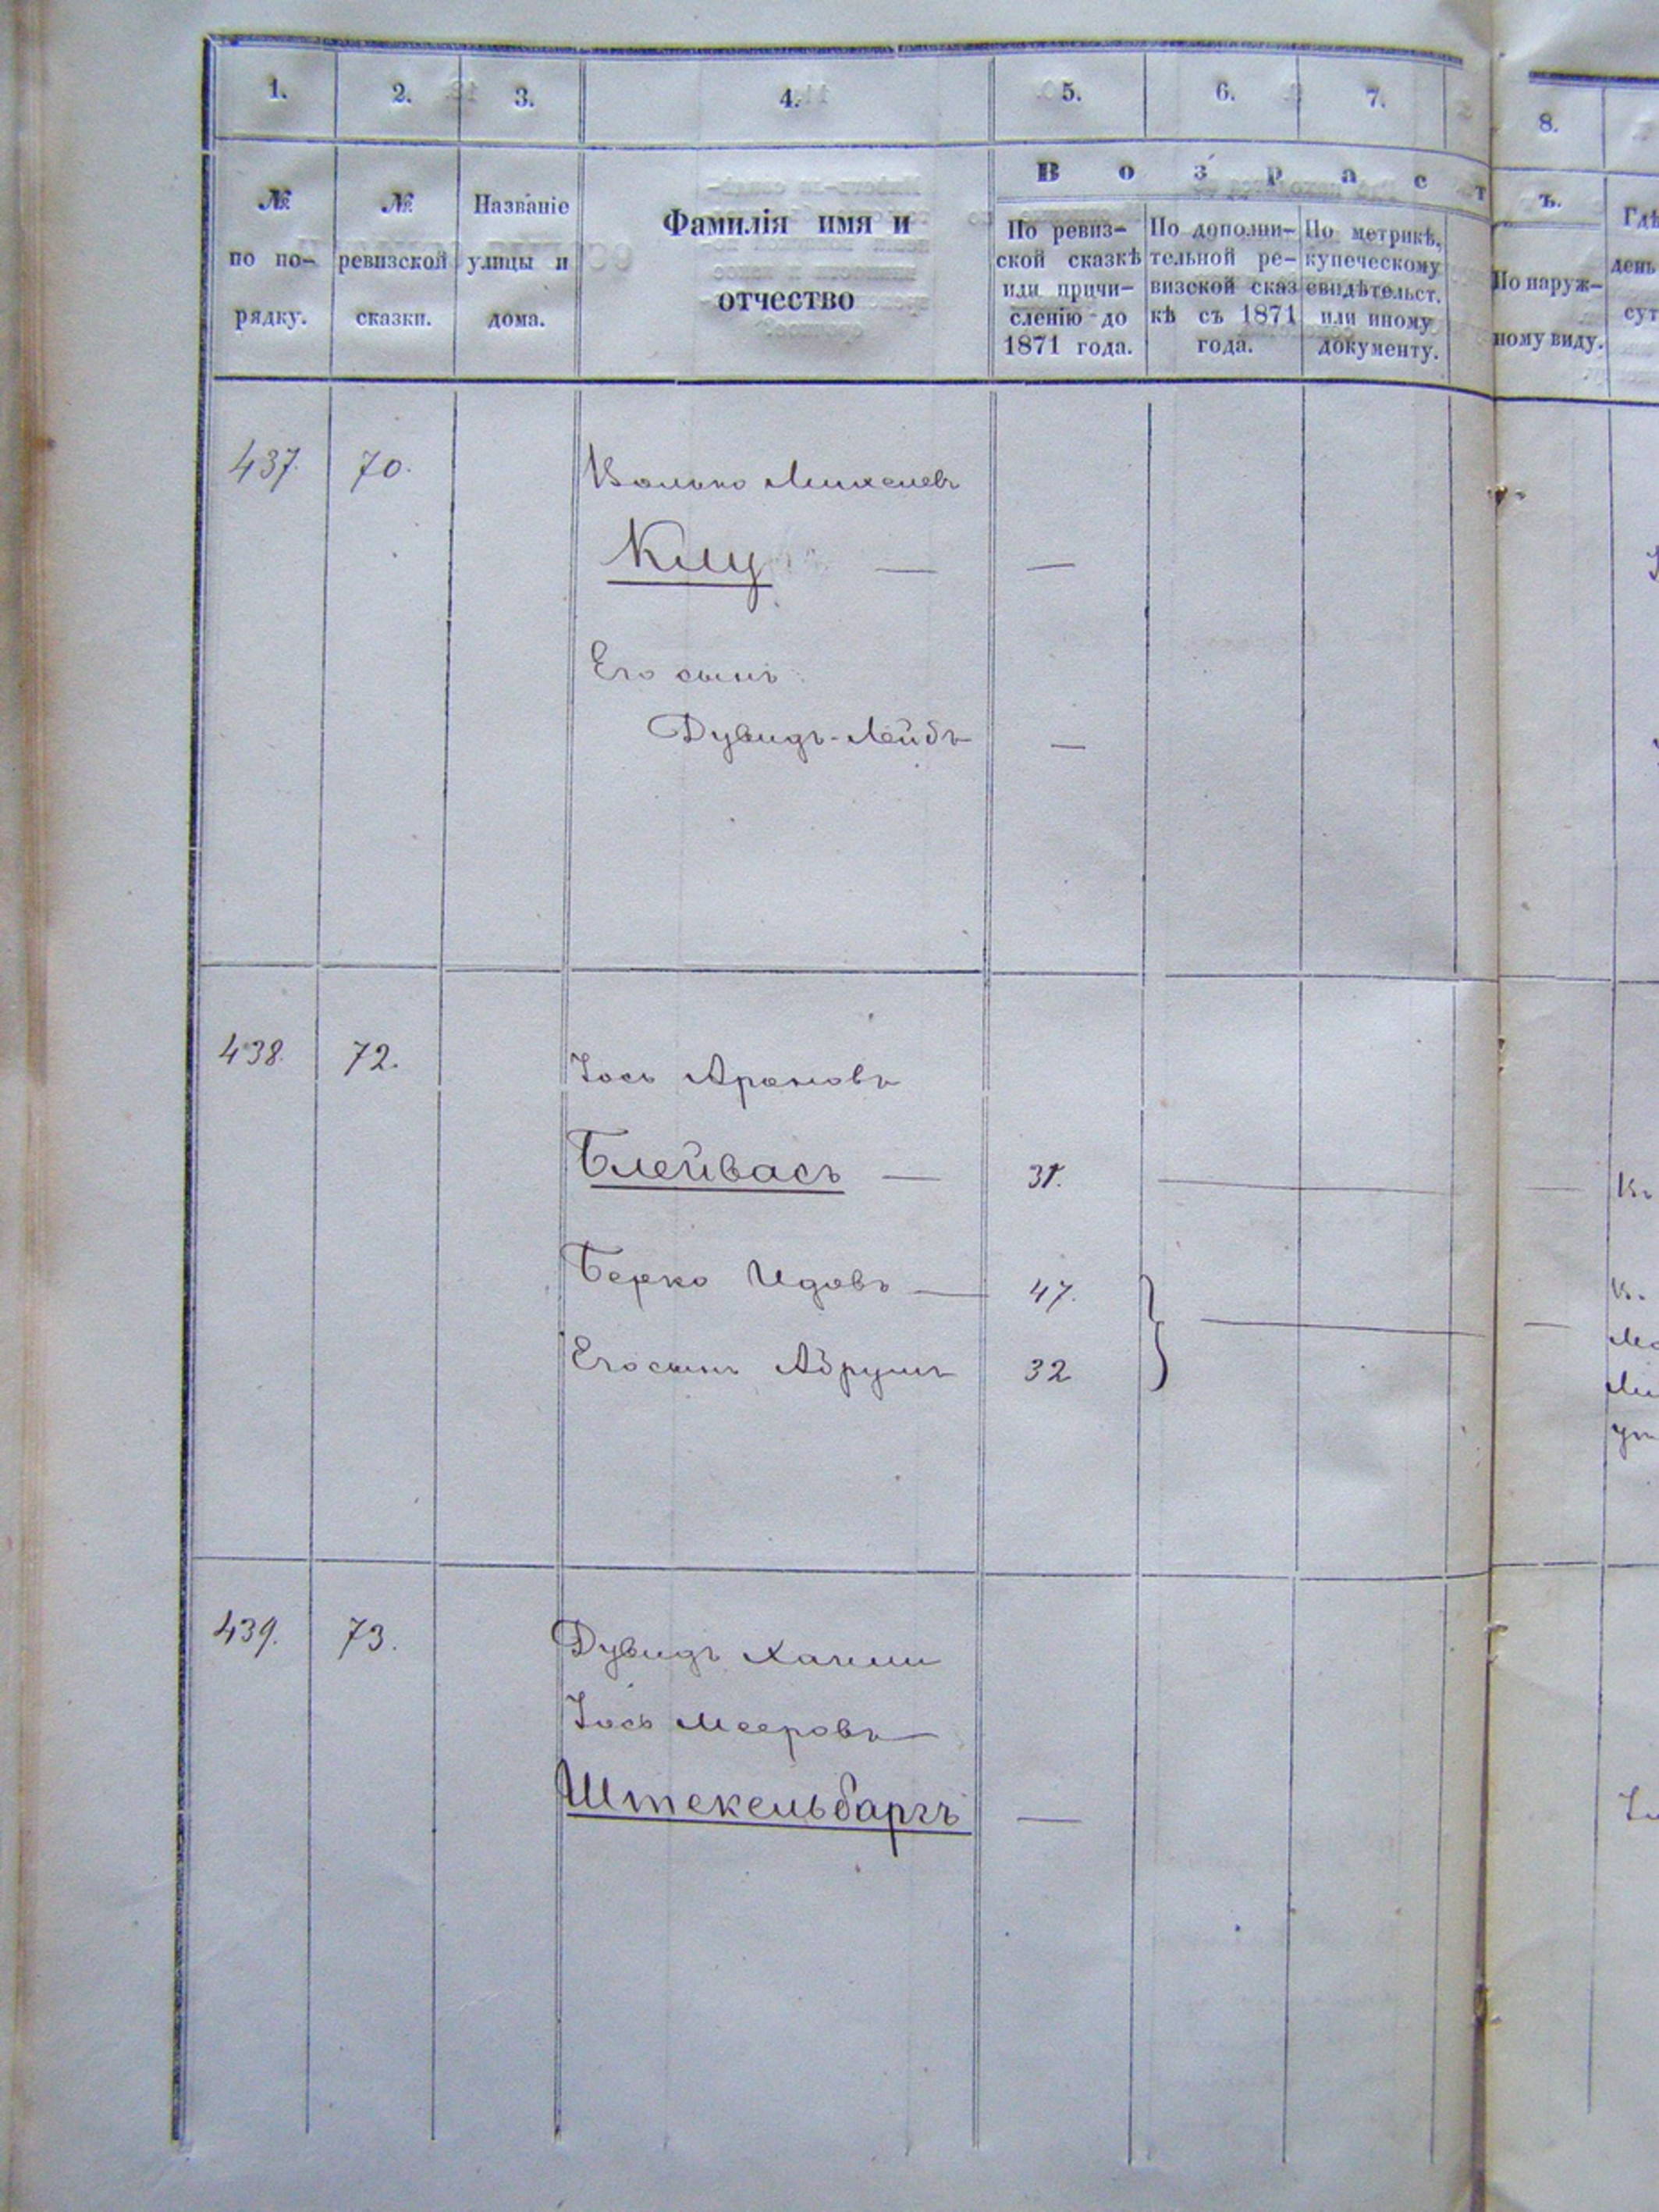 1. 2. 3. 4. 5. 6. 7. 8.
В о з р а с т ъ.
№ по по- рядку.
№ ревизской сказки.
Названіе улицы и дома.
Фамилія имя и
отчество
По ревиз-
ской сказкѣ
или причи-
сленію до
1871 года.
По дополни-
тельной ре-
визской сказ
кѣ съ 1871
года.
По метрикѣ,
купеческому
свидѣтельст.
или иному
документу.
По наруж-
ному виду.
Гдѣ
день
сут
437. 70. Волько Михелевъ
Клц — —
Его сынъ
Дувидъ-Лейбъ —
438. 72. Іось Ароновъ
Блейвасъ — 31.
Берко Идовъ — 47.
Его сынъ Абрумъ 32
439. 73. Дувидъ Хаимъ
Іось Мееровъ
Штекельбаргъ —